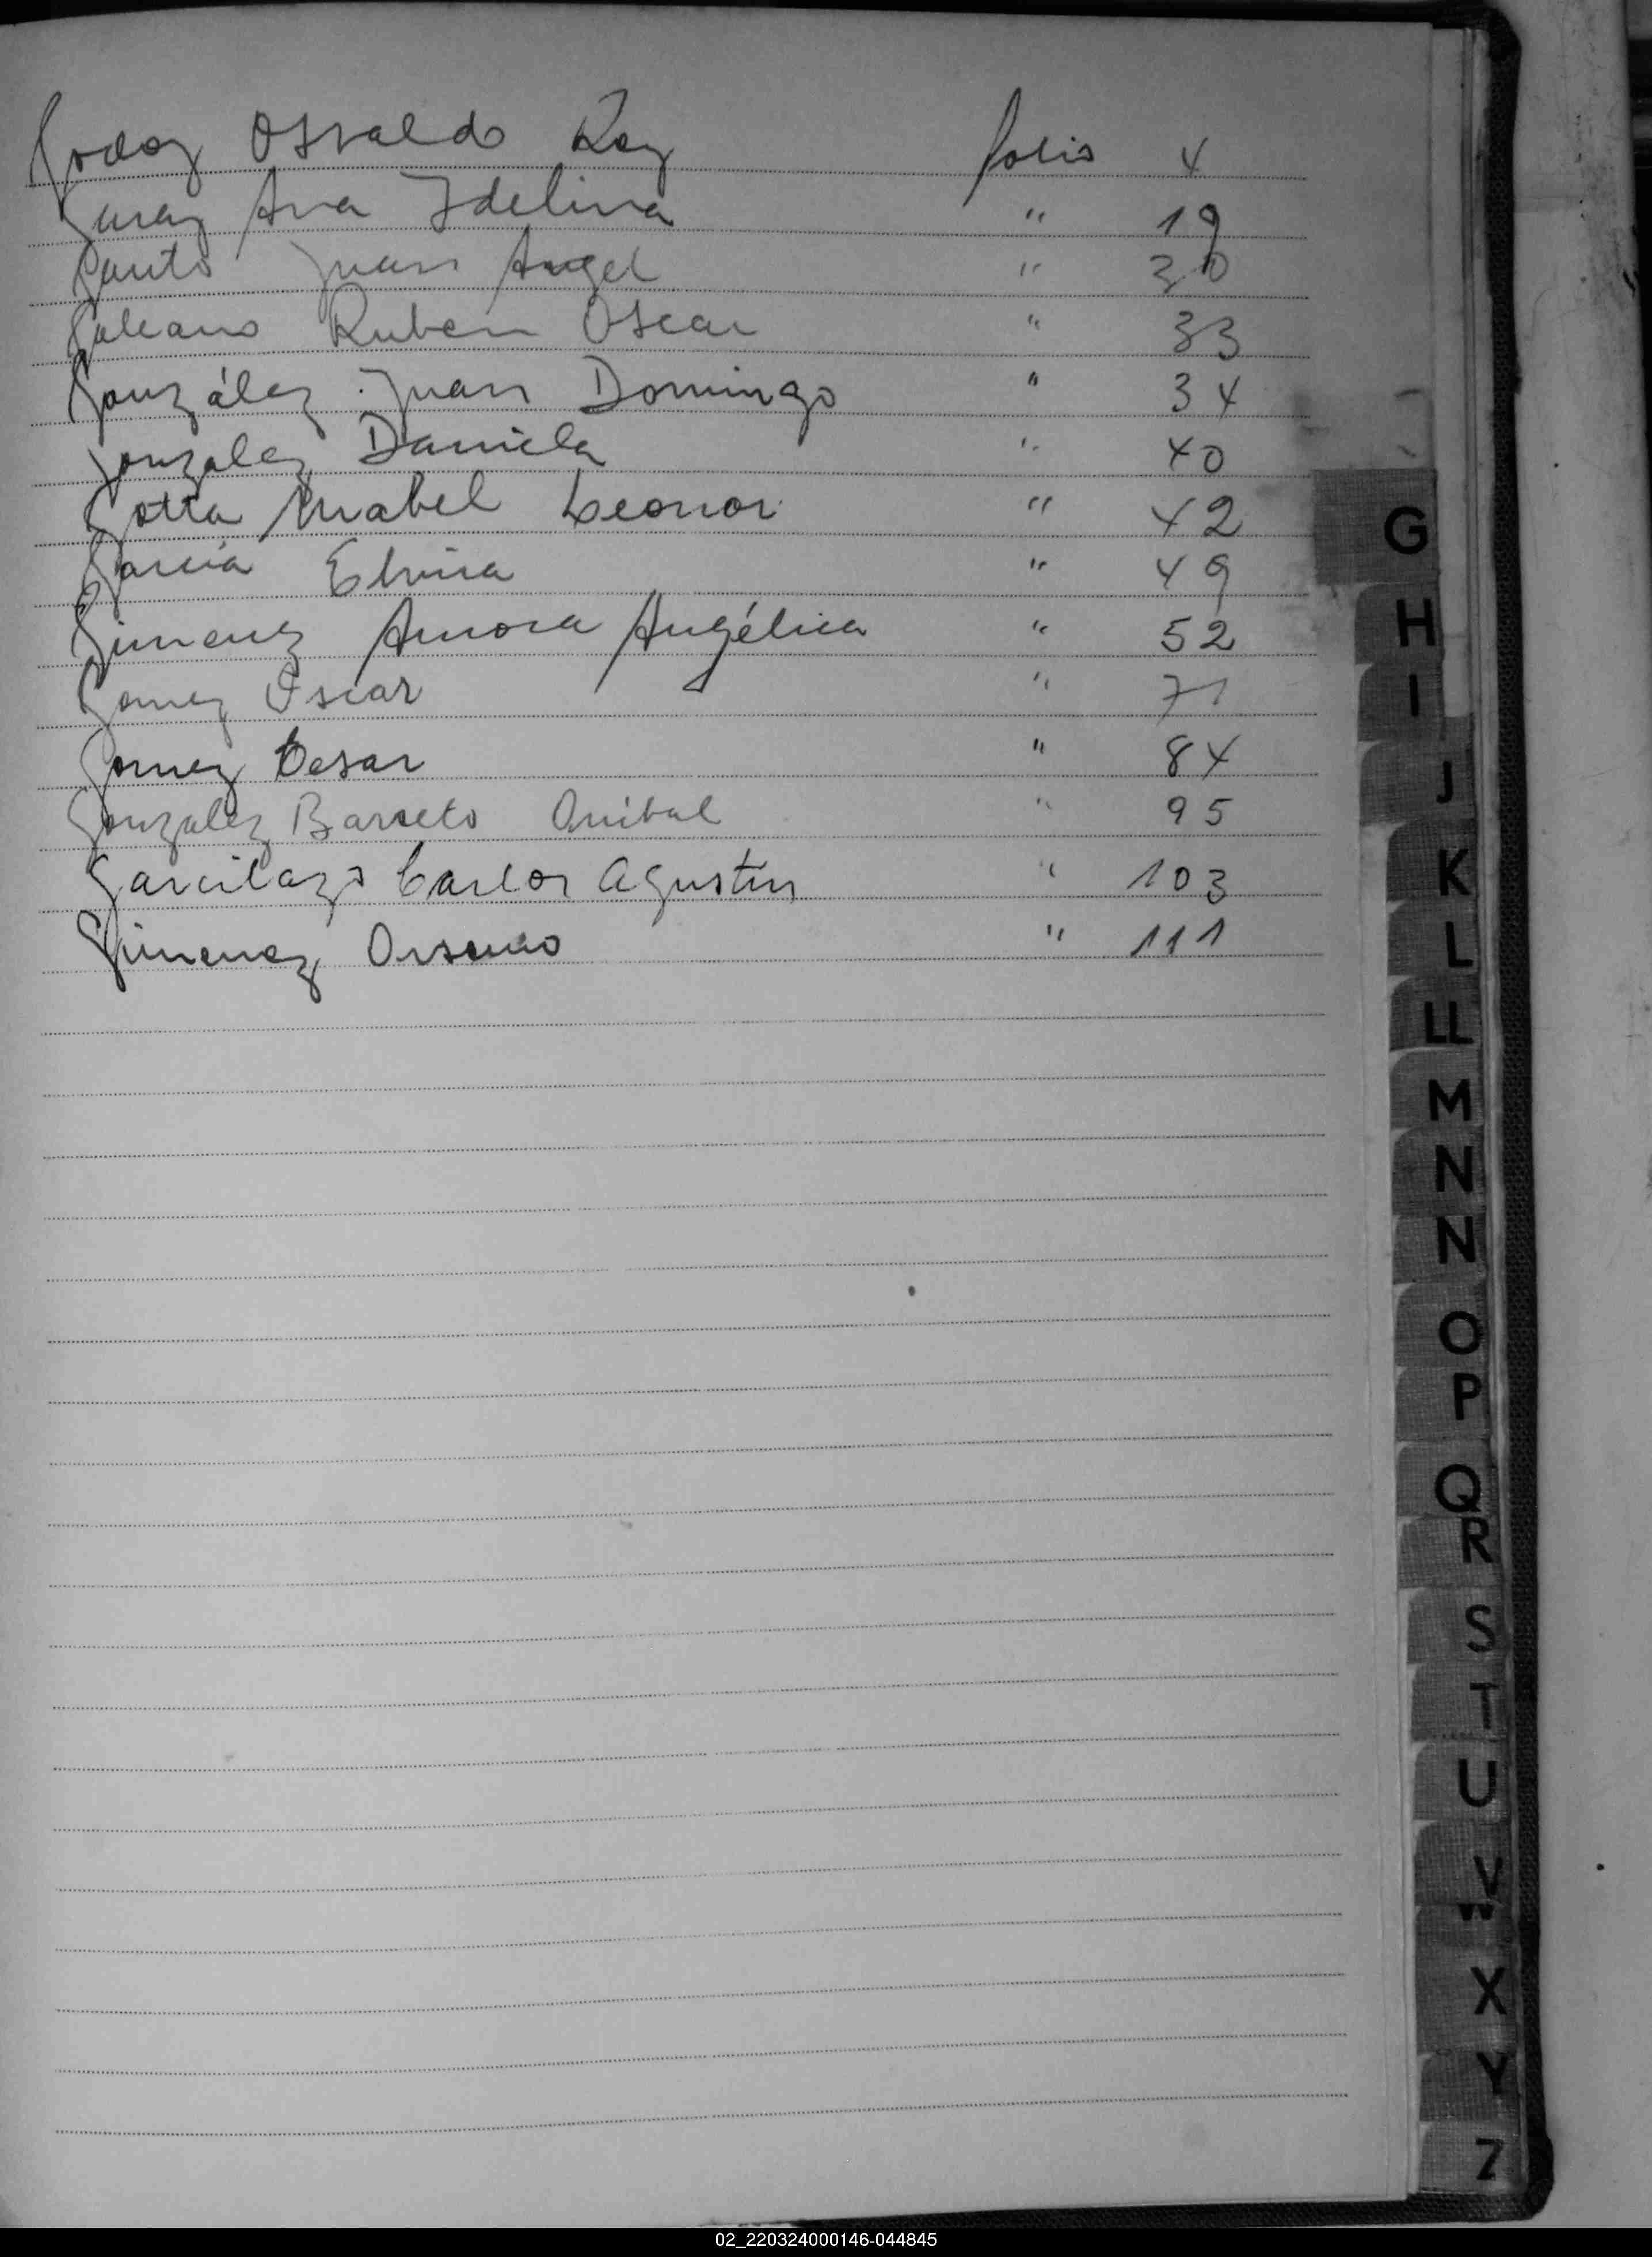 Godoy Osvaldo Roy folio 4
Garay Ana Idelina " 19
Juan Angel " 30
Galeano Ruben Oscar " 33
González Juan Domingo " 34
Gonzalez Daniela " 40
Gotta Mabel Leonor " 42
García Elvira " 49
Gimenez Amora Angélica " 52
Gomez Oscar " 71
Gomez Cesar " 84
Gonzalez Barreto Anibal " 95
Garcilazo Carlos Agustin " 103
Gimenez " 111
G
H
I
J
K
L
LL
M
N
N
O
P
Q
R
S
T
U
V
W
X
Y
Z
02_220324000146-044845